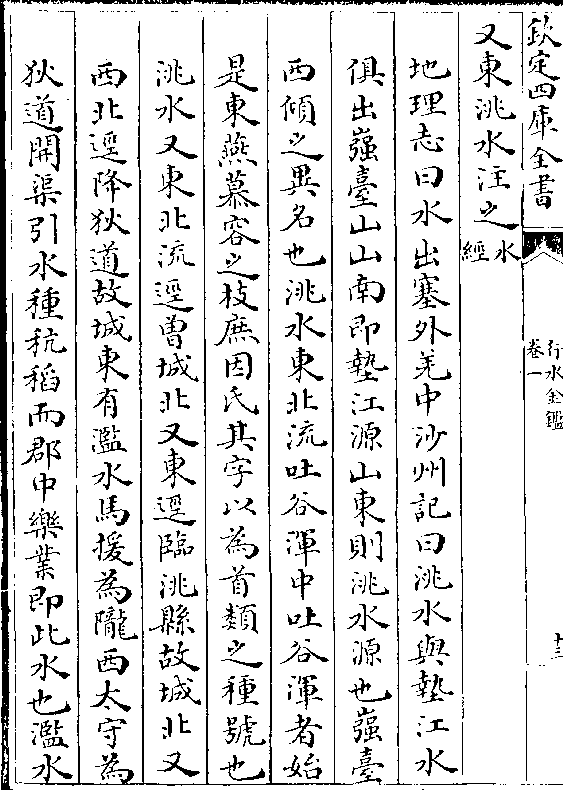 欽定四庫全書
行水金鑑
卷一
十三
又東洮水注之水經
地理志曰水出塞外羌中沙州記曰洮水與墊江水
俱出嵹臺山山南即墊江源山東則洮水源也嵹臺
西傾之異名也洮水東北流吐谷渾中吐谷渾者始
是東燕慕容之枝庶因氏其字以為首類之種號也
洮水又東北流逕曾城北又東逕臨洮縣故城北又
西北逕降狄道故城東有濫水馬援為隴西太守為
狄道開渠引水種秔稻而郡中樂業即此水也濫水